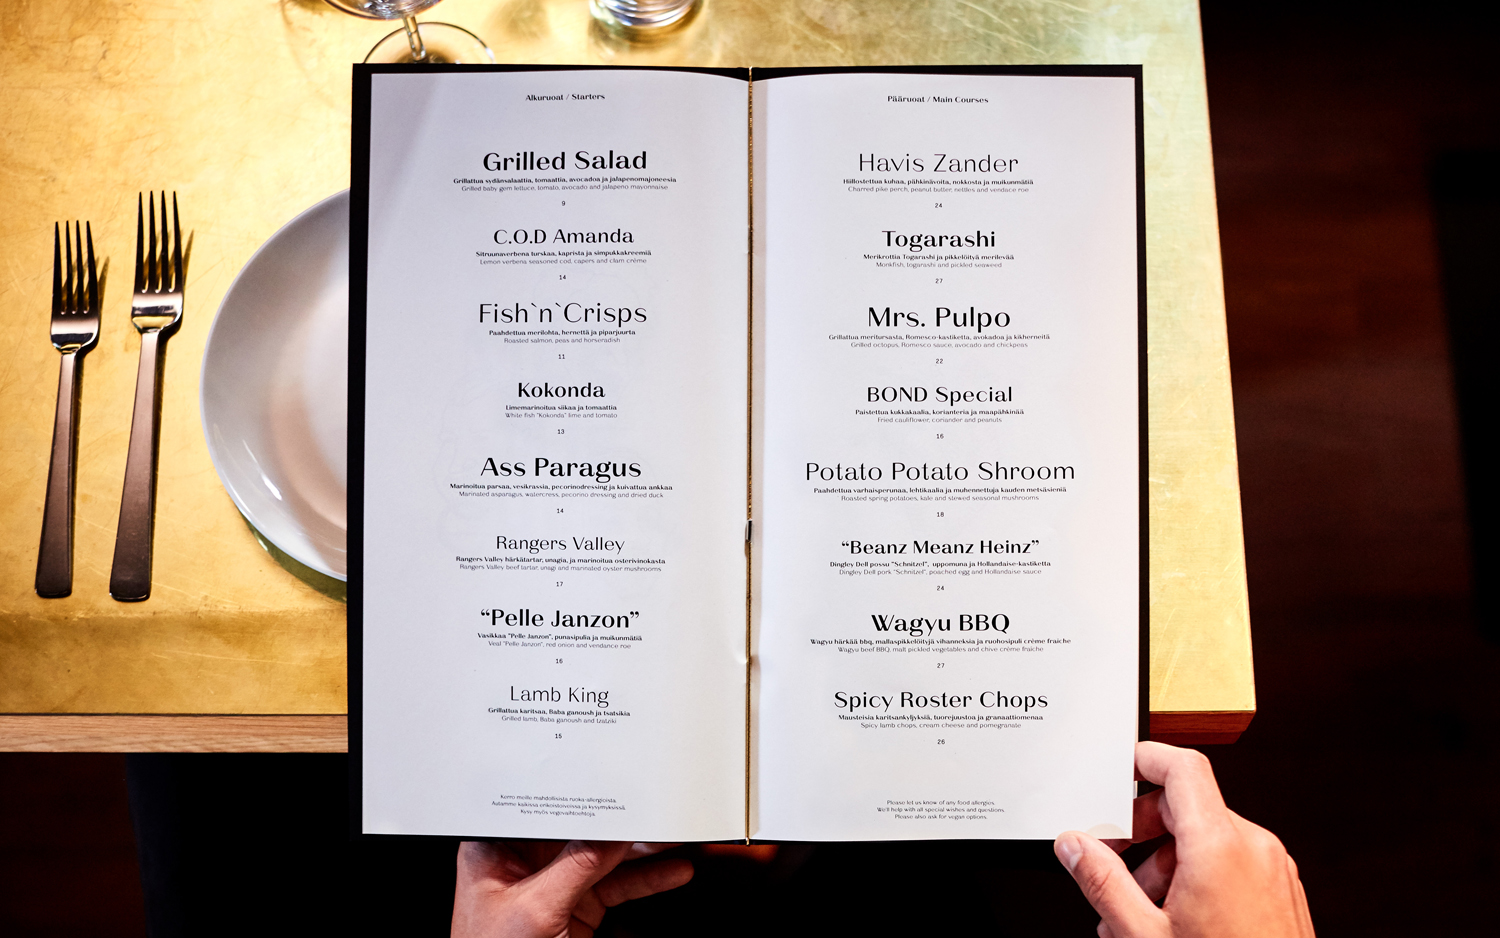 Alkuruoat / Starters
Grilled Salad
Grillattua sydänsalaattia, tomaattia, avocadoa ja jalapenomajoneesia
Grilled baby gem lettuce, tomato, avocado and jalapeno mayonnaise
9
C.O.D Amanda
Sitruunaverbena turskaa, kaprista ja simpukkakreemiä
Lemon verbena seasoned cod, capers and clam crème
14
Fish`n`Crisps
Paahdettua merilohta, hernettä ja piparjuurta
Roasted salmon, peas and horseradish
11
Kokonda
Limemarinoitua siikaa ja tomaattia
White fish "Kokonda" lime and tomato
13
Ass Paragus
Marinoitua parsaa, vesikrassia, pecorinodressing ja kuivattua ankkaa
Marinated asparagus, watercress, pecorino dressing and dried duck
14
Rangers Valley
Rangers Valley härkätartar, unagia, ja marinoitua osterivinokasta
Rangers Valley beef tartar, unagi and marinated oyster mushrooms
17
“Pelle Janzon”
Vasikkaa "Pelle Janzon", punasipulia ja muikunmätiä
Veal "Pelle Janzon", red onion and vendance roe
16
Lamb King
Grillattua karitsaa, Baba ganoush ja tsatsikia
Grilled lamb, Baba ganoush and tzatziki
15
Kerro meille mahdollisista ruoka-allergioista.
Autamme kaikissa erikoistoiveissa ja kysymyksissä.
Kysy myös vegevaihtoehtoja.
Pääruoat / Main Courses
Havis Zander
Hiillostettua kuhaa, pähkinävoita, nokkosta ja muikunmätiä
Charred pike perch, peanut butter, nettles and vendace roe
24
Togarashi
Merikrottia Togarashi ja pikkelöityä merilevää
Monkfish, togarashi and pickled seaweed
27
Mrs. Pulpo
Grillattua meritursasta, Romesco-kastiketta, avokadoa ja kikherneitä
Grilled octopus, Romesco sauce, avocado and chickpeas
22
BOND Special
Paistettua kukkakaalia, korianteria ja maapähkinää
Fried cauliflower, coriander and peanuts
16
Potato Potato Shroom
Paahdettua varhaisperunaa, lehtikaalia ja muhennettuja kauden metsäsieniä
Roasted spring potatoes, kale and stewed seasonal mushrooms
18
“Beanz Meanz Heinz”
Dingley Dell possu "Schnitzel", uppomuna ja Hollandaise-kastiketta
Dingley Dell pork "Schnitzel", poached egg and Hollandaise sauce
24
Wagyu BBQ
Wagyu härkää bbq, mallaspikkelöityjä vihanneksia ja ruohosipuli crème fraiche
Wagyu beef BBQ, malt pickled vegetables and chive crème fraiche
27
Spicy Roster Chops
Mausteisia karitsankyljyksiä, tuorejuustoa ja granaattiomenaa
Spicy lamb chops, cream cheese and pomegranate
26
Please let us know of any food allergies.
We'll help with all special wishes and questions.
Please also ask for vegan options.